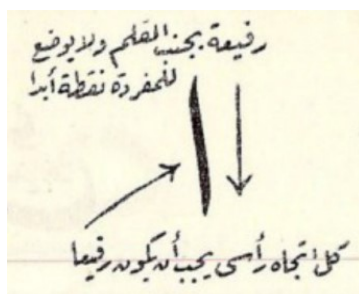 رفيعة بجنب القلم ولا يوضع
للمفردة نقطة أبدا
ا
كل اتجاه رأسى يجب أن يكون رفيعا